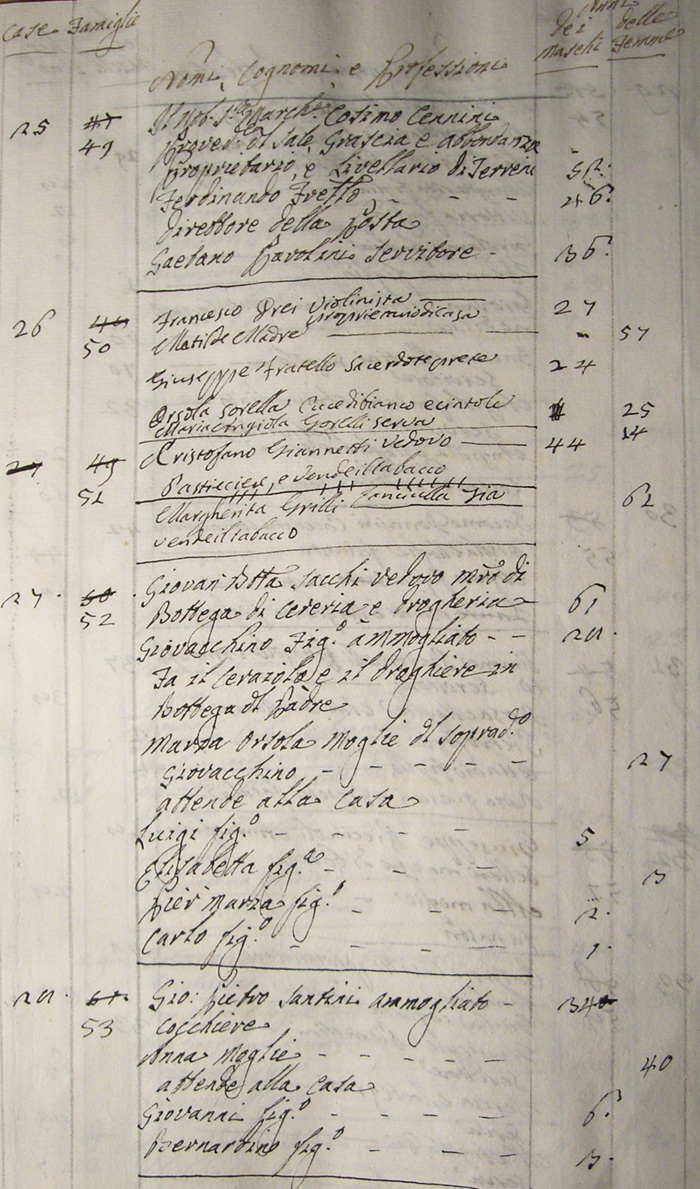 Case Famiglie Nomi, Cognomi e Professioni Anni dei Maschi delle Femmine
25 47 Il Nob. Sig.re March.e Cosimo Cennini
49 Proved. di Sale, Grascia e abbondanza
Proprietario, e Livellario di Terreni
Ferdinando - - - 26.
Direttore della Posta
Gaetano Pavolini Servitore - 36.
26 Francesco Drei Violinista 27
proprietario di casa
50 Matilde Madre - 57
Giuseppe Fratello Sacerdote prete 24
Orsola Sorella Cuce di bianco e cintole 25
Maria Angiola Gorelli serva 14
27 49 Cristofano Giannetti Vedovo 44
Pasticciere, e vende il tabacco
51 Margherita Grilli Fanciulla Zia 62
vende il tabacco
27. 50. Giovan Btta Sacchi vedovo mro di
52 Bottega di Cereria e Drogheria 61
Giovacchino Fig.o ammogliato - - 28.
Fa il Ceraiolo e il Droghiere in
Bottega dl Padre
Maria Orsola Moglie dl soprad.o
Giovacchino - - - - - 27
attende alla Casa
Luigi fig.o - - - - 5
Elisabetta fig.a - - - - 3
Pier Maria fig.o - - - 2.
Carlo fig.o - - - - 1.
28. 51. Gio: Pietro Santini ammogliato - 34
53 Cocchiere
Anna Moglie - - - - - 40
attende alla Casa
Giovanni fig.o - - - - 6.
Bernardino fig.o - - - - 3.